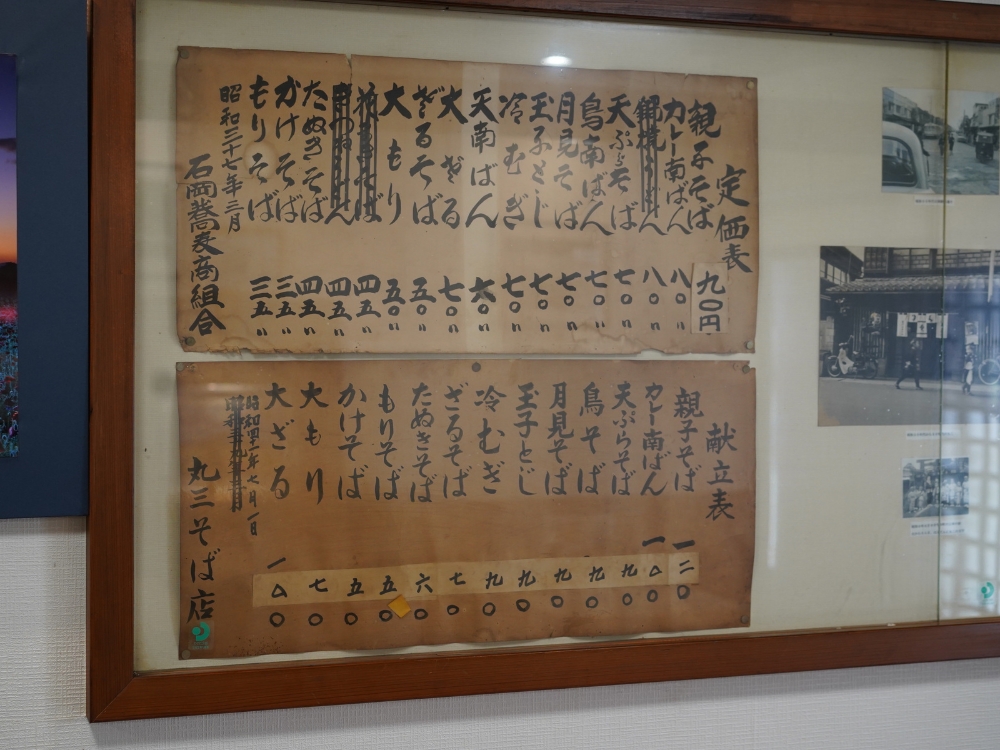 定価表
親子そば 九〇円
カレー南ばん 八〇〃
鍋焼うどん 八〇〃
天ぷらそば 七〇〃
鳥南ばん 七〇〃
月見そば 七〇〃
玉子とじ 七〇〃
冷むぎ 七〇〃
天南ばん 六〇〃
大ざる 七〇〃
ざるそば 五〇〃
大もり 五〇〃
四五〃
四五〃
たぬきそば 四五〃
かけそば 三五〃
もりそば 三五〃
昭和三十七年三月
石岡蕎麦商組合
献立表
親子そば 一二〇
カレー南ばん 一〇〇
天ぷらそば 九〇
鳥そば 九〇
月見そば 九〇
玉子とじ 九〇
冷むぎ 九〇
ざるそば 七〇
たぬきそば 六〇
もりそば 五〇
かけそば 五〇
大もり 七〇
大ざる 一〇〇
昭和四十一年七月一日
丸三そば店